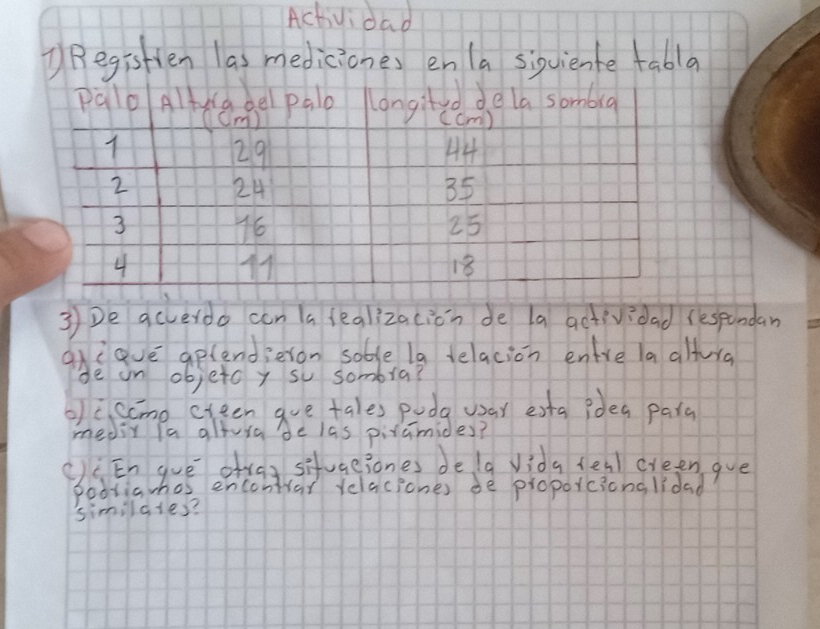 Actividad
1) Registren las mediciones en la siguiente tabla
Palo Altura del palo longitud de la sombra
(cm) (cm)
1 29 44
2 24 35
3 16 25
4 11 18
3) De acuerdo con la realización de la actividad respondan
a) ¿que aprendieron sobre la relación entre la altura
de un objeto y su sombra?
b) ¿Cómo creen que tales pudo usar esta idea para
medir la altura de las pirámides?
c) ¿En que otras situaciones de la vida real creen que
podriamos encontrar relaciones de proporcionalidad
similares?